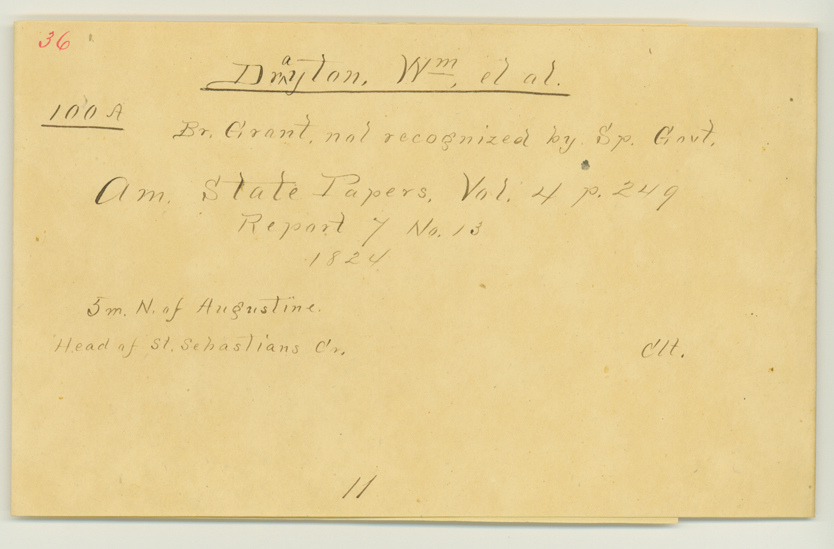 36
Drayton, Wm, et al.
100 A
Br. Grant, not recognized by Sp. Govt.
Am. State Papers, Vol. 4 p. 249
Report 7 No. 13
1824
5m. N. of Augustine.
Head of St. Sebastians Cr.
11